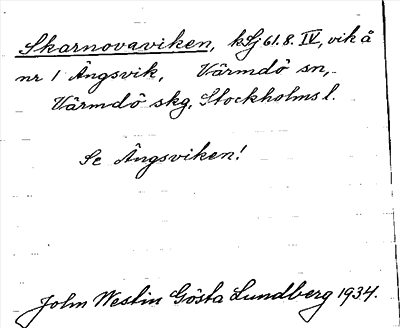 Skarnovaviken, kSj 61.8. IV, vik å
nr 1 Ängsvik, Värmdö sn,
Värmdö skg, Stockholms l.
Se Ängsviken!
John Westin Gösta Lundberg 1934.